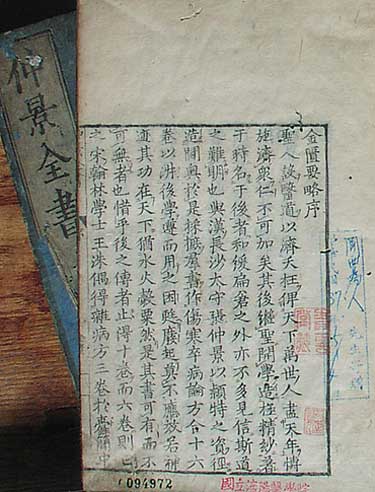 仲景全書
金匱要略序
聖人設醫道以濟夭枉俾天下萬世人盡天年博
施濟衆仁不可加矣其後繼聖開學造極精妙著
于時名于後者和緩扁倉之外亦不多見信斯道
之難明也與漢長沙太守張仲景以頴特之資徑
造閫奥於是採摭羣書作傷寒卒病論方合十六
卷以淑後學遵而用之困甦廢起莫不應效若神
迹其功在天下猶水火穀粟然是其書可有而不
可無者也惜乎後之傳者止得十卷而六卷則亡
之宋翰林學士王洙偶得雜病方三卷於蠹簡中
094972
國立瀋陽醫學院